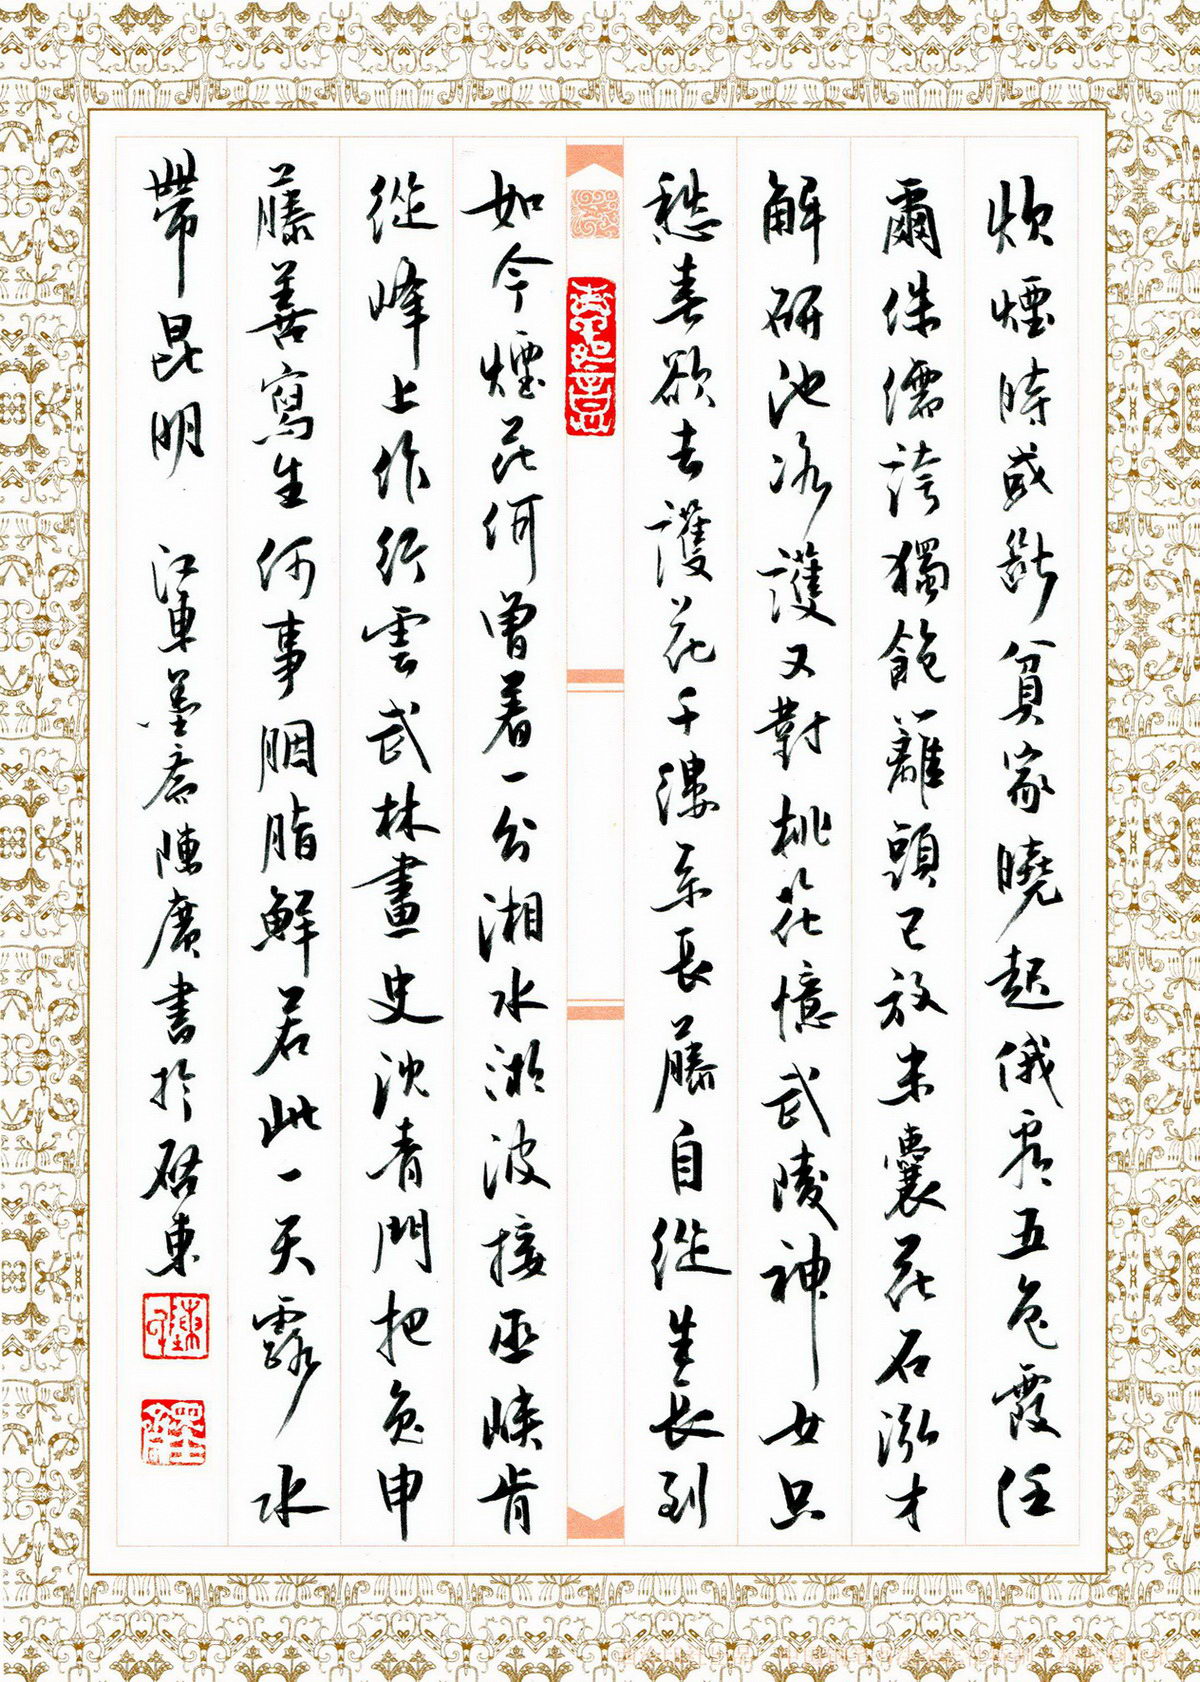 炊煙時或斷貧家曉起俄看五色霞任
爾侏儒誇獨飽籬頭已放米囊花石泓才
解研池冰護又對桃花憶武陵神女只
愁春欲去護花千縷系長藤自從生長到
如今煙花何曾着一分湘水湘波接巫峽肯
從峰上作行雲武林畫史沈青門把兔申
藤善寫生何事胭脂鮮若此一天露水
帶昆明
江東墨齋陳廣書於啟東